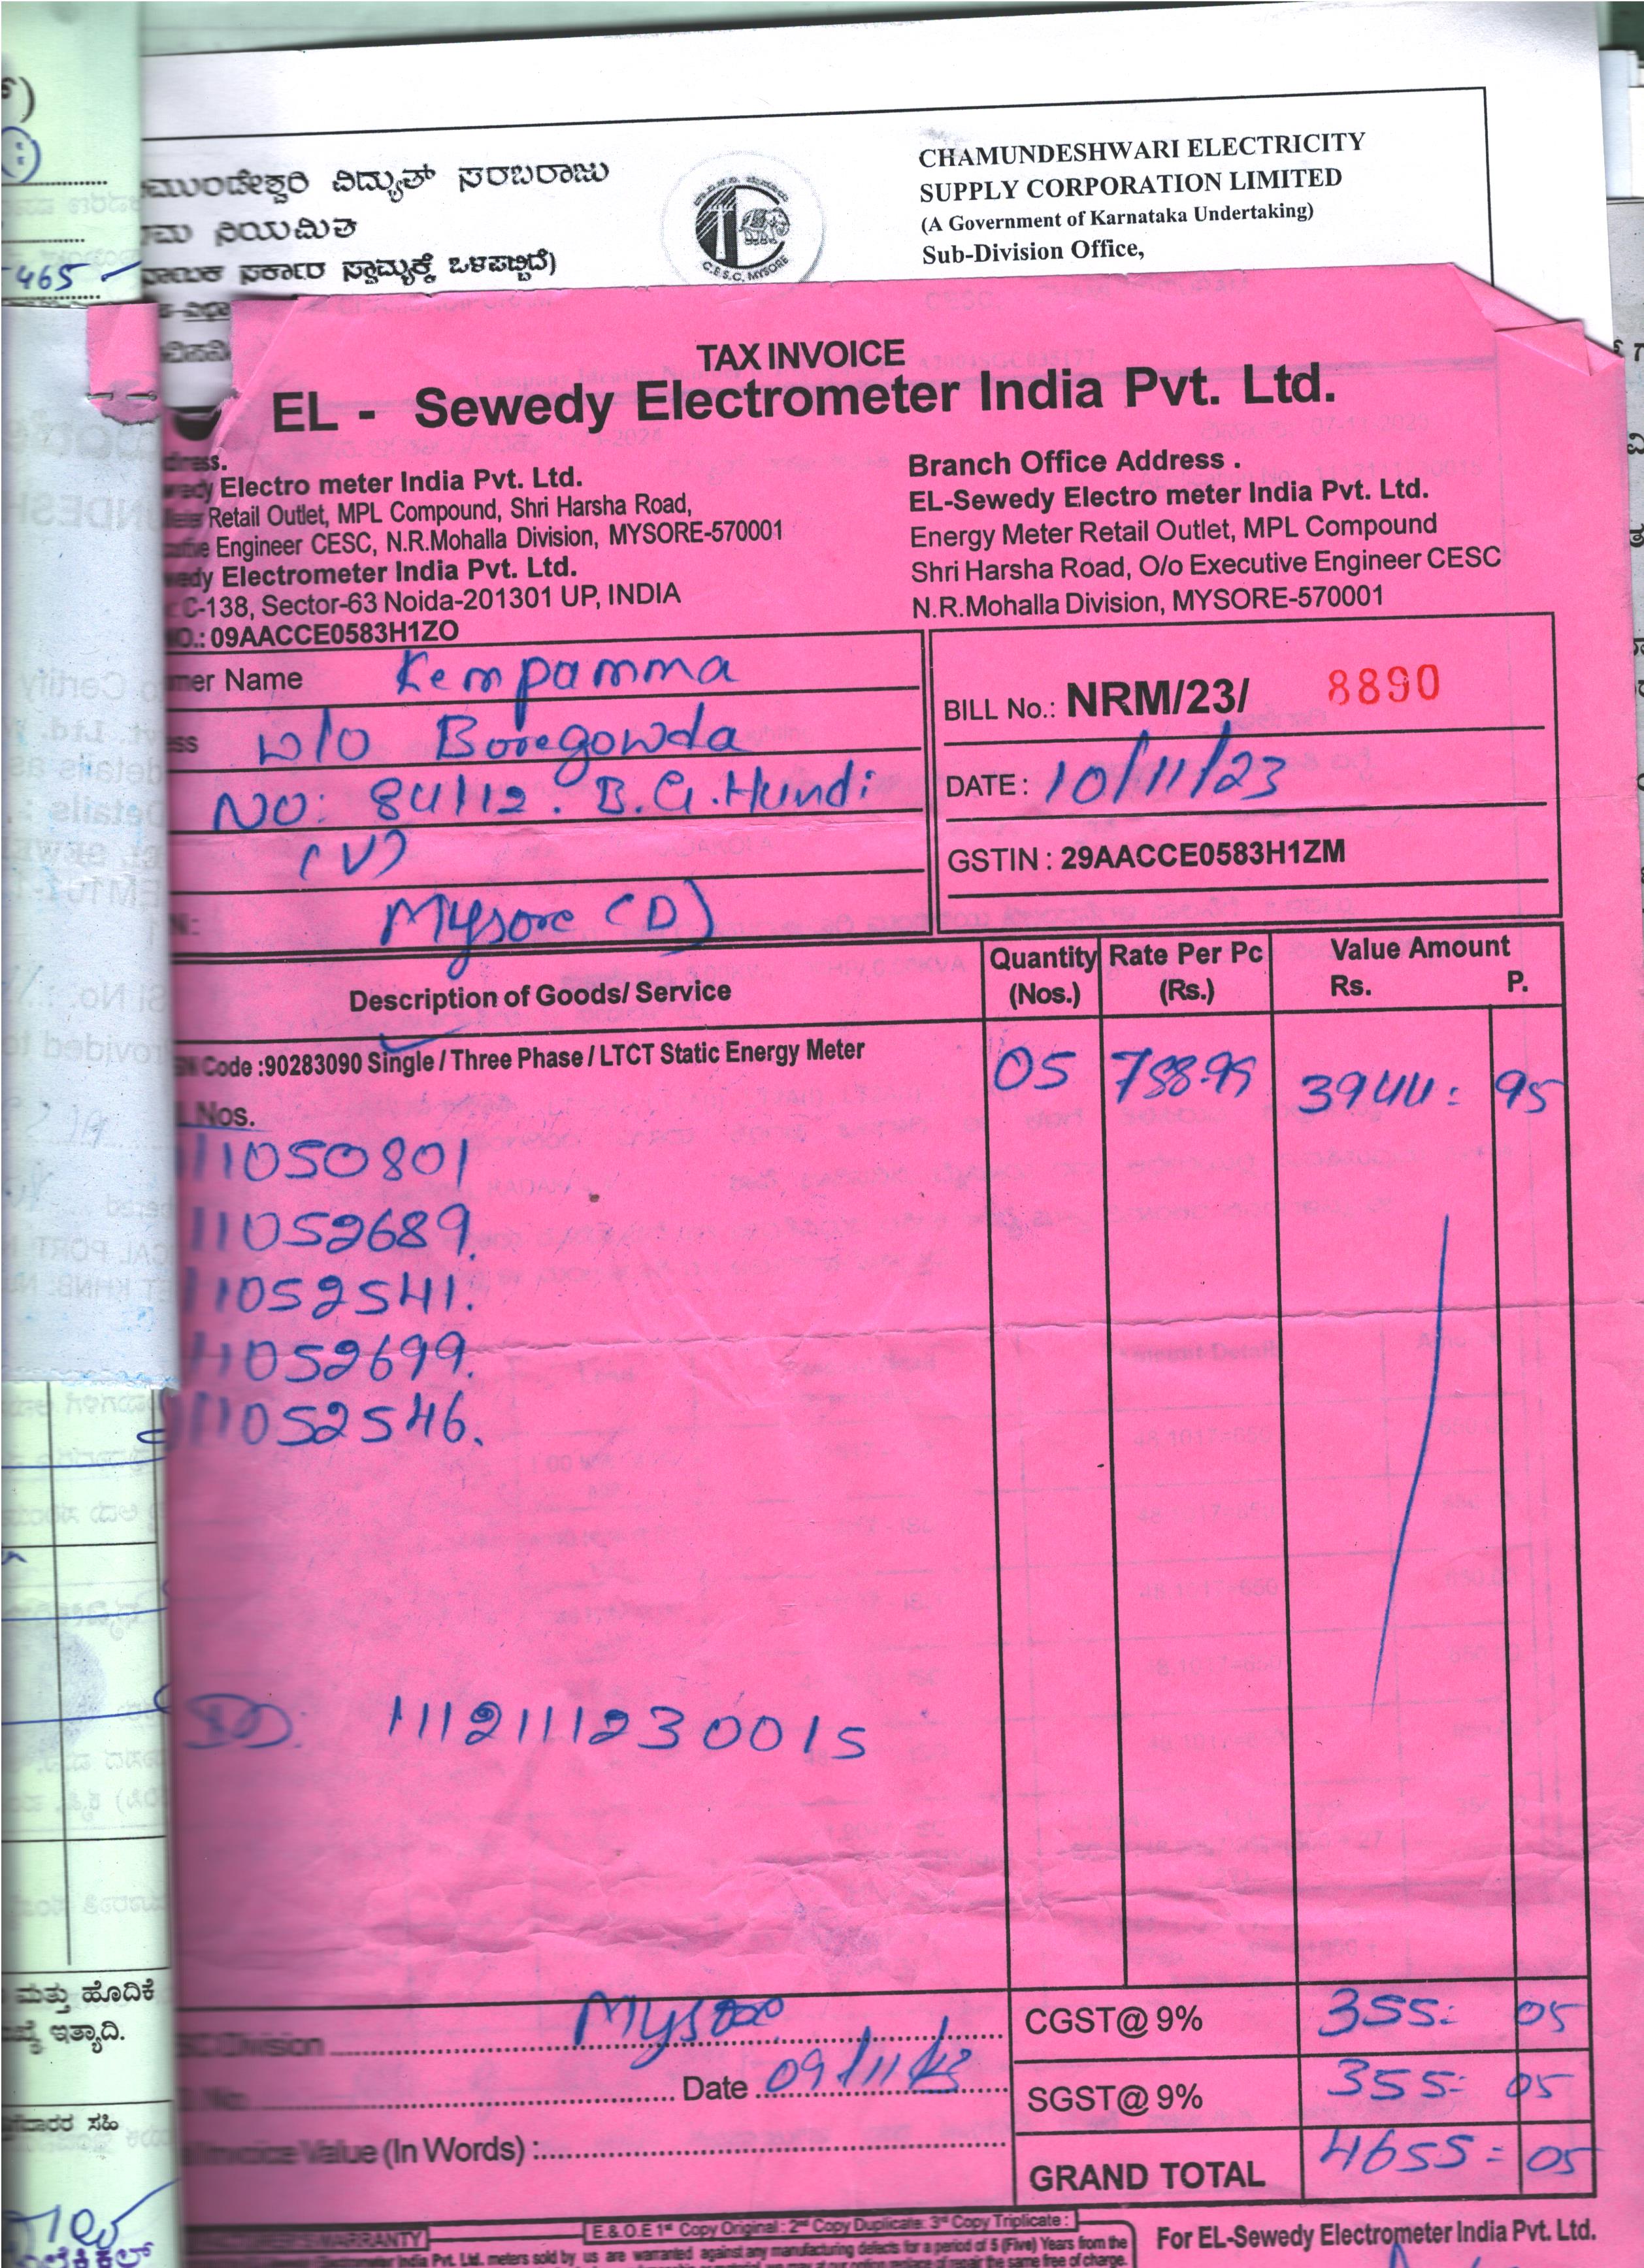 465
ವಿದ್ಯುತ್ ಸರಬರಾಜು
ನಿಯಮಿತ
ಸರ್ಕಾರ ಸ್ವಾಮ್ಯಕ್ಕೆ ಒಳಪಟ್ಟಿದೆ)
C.E.S.C. MYSORE
CHAMUNDESHWARI ELECTRICITY
SUPPLY CORPORATION LIMITED
(A Government of Karnataka Undertaking)
Sub-Division Office,
TAX INVOICE
EL - Sewedy Electrometer India Pvt. Ltd.
Electro meter India Pvt. Ltd.
Retail Outlet, MPL Compound, Shri Harsha Road,
Engineer CESC, N.R.Mohalla Division, MYSORE-570001
Electrometer India Pvt. Ltd.
C-138, Sector-63 Noida-201301 UP, INDIA
09AACCE0583H1ZO
Branch Office Address .
EL-Sewedy Electro meter India Pvt. Ltd.
Energy Meter Retail Outlet, MPL Compound
Shri Harsha Road, O/o Executive Engineer CESC
N.R.Mohalla Division, MYSORE-570001
Name Kempamma
W/O Boregowda
NO: 84/12. B.G.Hundi
(V)
Mysore (D)
BILL No.: NRM/23/ 8890
DATE : 10/11/23
GSTIN : 29AACCE0583H1ZM
Description of Goods/ Service
Quantity (Nos.)
Rate Per Pc (Rs.)
Value Amount
Rs. P.
Code :90283090 Single / Three Phase / LTCT Static Energy Meter
05 788.99 3944= 95
Nos.
11050801
11052689.
11052541.
11052699.
11052546.
111211123 0015
Division Mysore
Date 09/11/23
Value (In Words) :
CGST@ 9% 355= 05
SGST@ 9% 355= 05
GRAND TOTAL 4655= 05
E.& O.E 1st Copy Original : 2nd Copy Duplicate: 3rd Copy Triplicate :
WARRANTY
India Pvt. Ltd. meters sold by us are warranted against any manufacturing defects for a period of 5 (Five) Years from the
For EL-Sewedy Electrometer India Pvt. Ltd.
ಮತ್ತು ಹೊದಿಕೆ
ಇತ್ಯಾದಿ.
ಸಹಿ